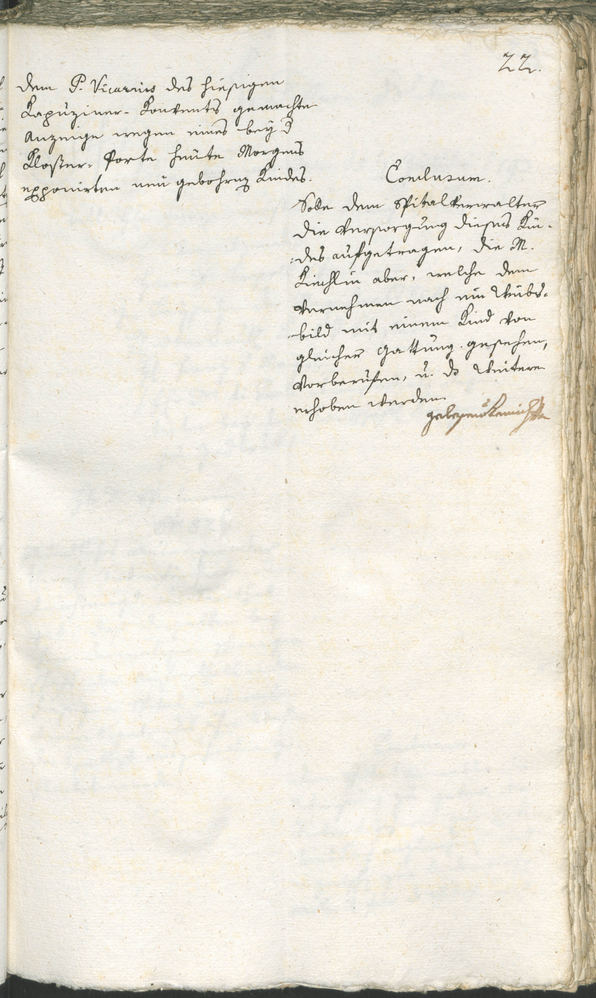 22.
dem P. Vicarius des hiesigen
Kapuziner-Konvents gemachte
Anzeige wegen eines bey d
Kloster-Porte heute Morgens
exponirten neu gebohrnen Kindes.
Conclusum.
Solle dem Spitalverwalter
die Versorgung dieses Kin-
des aufgetragen, die M.
aber, welche dem
Vernehmen nach ein Weibs-
bild mit einem Kind von
gleicher Gattung gesehen,
Vorberufen, u. ds Weitere
erhoben werden.